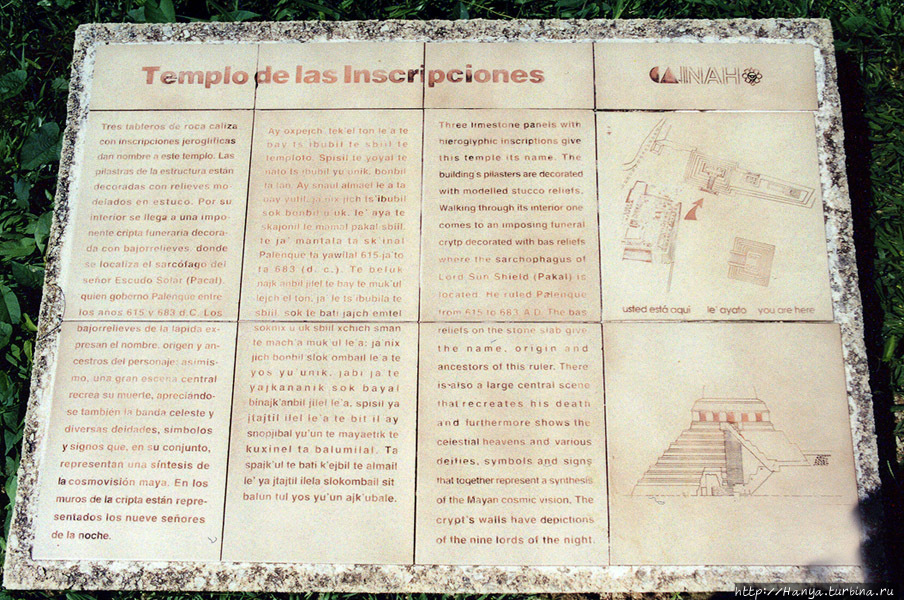 Templo de las Inscripciones
INAH
Tres tableros de roca caliza
con inscripciones jeroglíficas
dan nombre a este templo. Las
pilastras de la estructura están
decoradas con relieves mo-
delados en estuco. Por su
interior se llega a una impo-
nente cripta funeraria decora-
da con bajorrelieves, donde
se localiza el sarcófago del
señor Escudo Solar (Pacal),
quien goberno Palenque entre
los años 615 y 683 d.C. Los
bajorrelieves de la lápida ex-
presan el nombre, origen y an-
cestros del personaje: asimis-
mo, una gran escena central
recrea su muerte, apreciándo-
se también la banda celeste y
diversas deidades, símbolos
y signos que, en su conjunto,
representan una síntesis de
la cosmovisión maya. En los
muros de la cripta están repre-
sentados los nueve señores
de la noche.
Ay oxpejch, tek'el ton le a te
bay ts ibubil te sbiil te
temploto. Spisil te yoyal te
nato ts ibubil yu unik, bonbil
ta tan. Ay snaul almael le a ta
yuhil, ja nix jich ts'ibubil
sok bonbil u uk. le' aya te
skajonil te mamal pakal sbiil.
te ja' mantala ta sk'inal
Palenque ta yawilal 615 ja'to
ta 683 (d. c.). Te beluk
najk anbil jilel te bay te muk'ul
lejch el ton, ja' le ts ibubila te
sbiil, sok te bati jajch emtel
soknix u uk sbiil xchich sman
te mach'a muk ul le a: ja nix
jich bonbil slok ombail le a te
yos yu'unik, jabi ja te
yajkananik sok bayal
binajk'anbil jilel le'a, spisil ya
jtajtil ilel le'a te bit il ay
snopjibal yu'un te mayaetik te
kuxinel ta balumilal. Ta
spajk'ul te bati k'ejbil te almail
le' ya jtajtil ilela slokombail sit
balun tul yos yu'un ajk'ubale.
Three limestone panels with
hieroglyphic inscriptions give
this temple its name. The
building's pilasters are decorated
with modelled stucco reliefs.
Walking through its interior one
comes to an imposing funeral
crytp decorated with bas reliefs
where the sarchophagus of
Lord Sun Shield (Pakal) is
located. He ruled Palenque
from 615 to 683 A.D. The bas
reliefs on the stone slab give
the name, origin and
ancestors of this ruler. There
is also a large central scene
that recreates his death
and furthermore shows the
celestial heavens and various
deities, symbols and signs
that together represent a synthesis
of the Mayan cosmic vision. The
crypt's walls have depictions
of the nine lords of the night.
usted está aquí le' ayato you are here
http://Hanya.turbina.ru